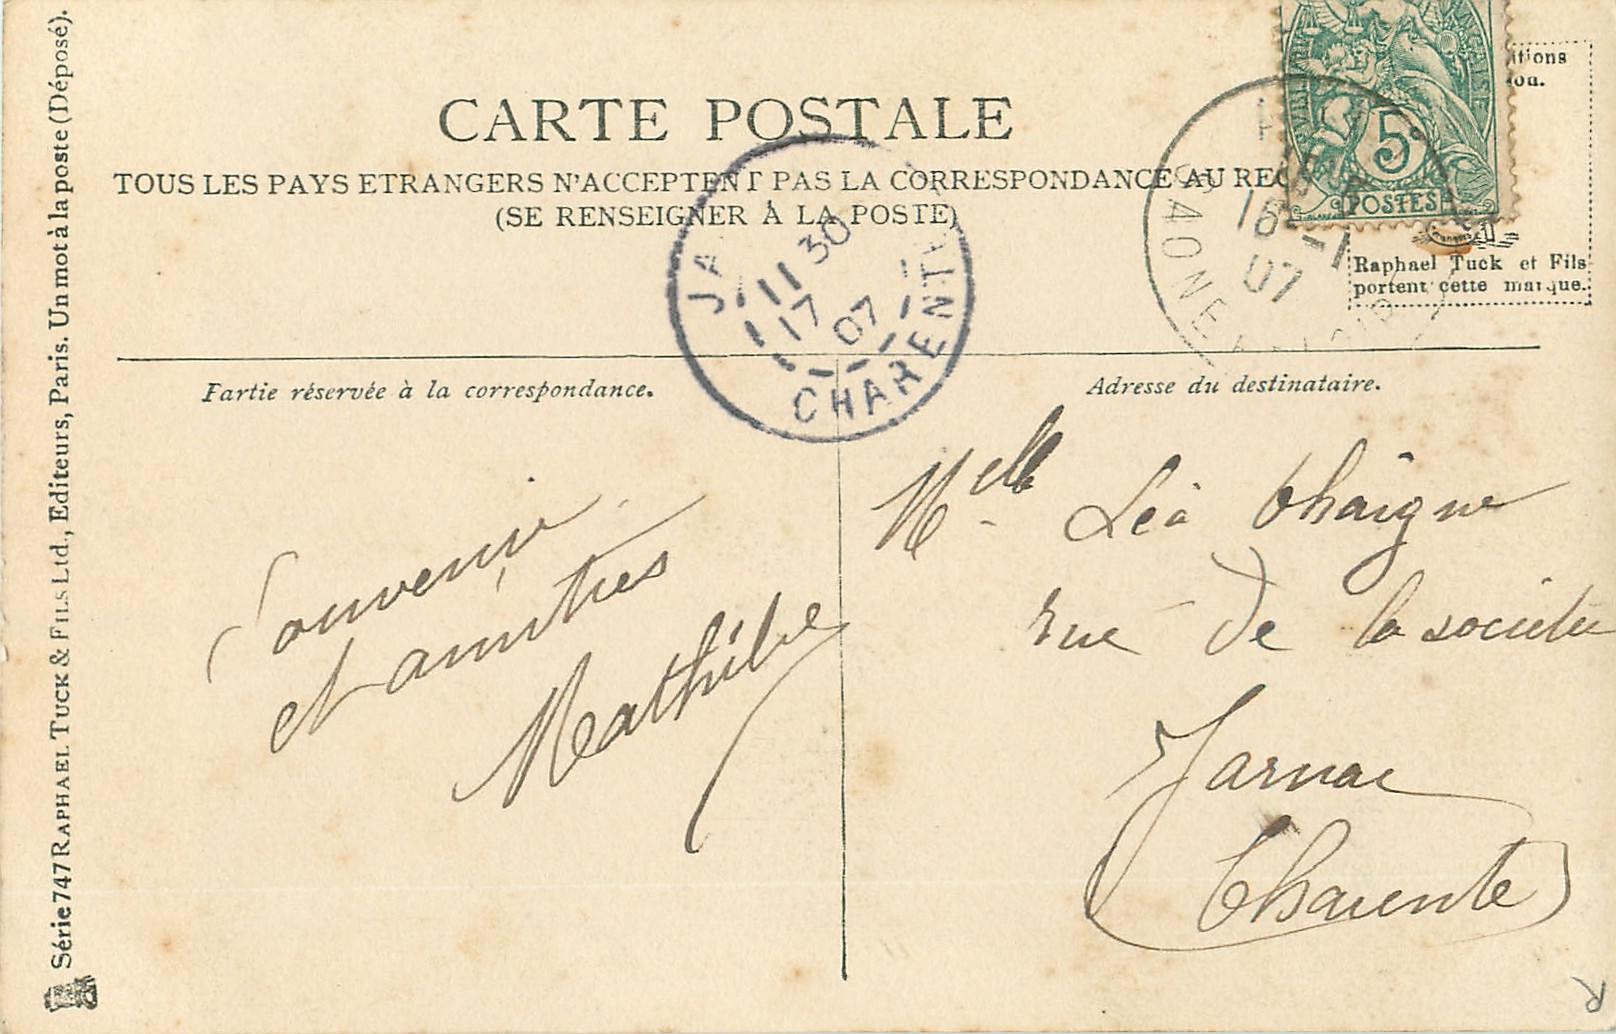 CARTE POSTALE
TOUS LES PAYS ETRANGERS N'ACCEPTENT PAS LA CORRESPONDANCE AU REC
(SE RENSEIGNER À LA POSTE)
5c
POSTES
itions
on.
Raphael Tuck et Fils
portent cette marque.
16 -1
07
JA
11 30
17
07
CHARENTE
Partie réservée à la correspondance.
Adresse du destinataire.
Souvenir
et amitiés
Mathilde
Melle Léa Chaigne
rue de la société
Jarnac
Charente
Série 747 RAPHAEL TUCK & FILS Ltd., Editeurs, Paris. Un mot à la poste (Déposé).
R